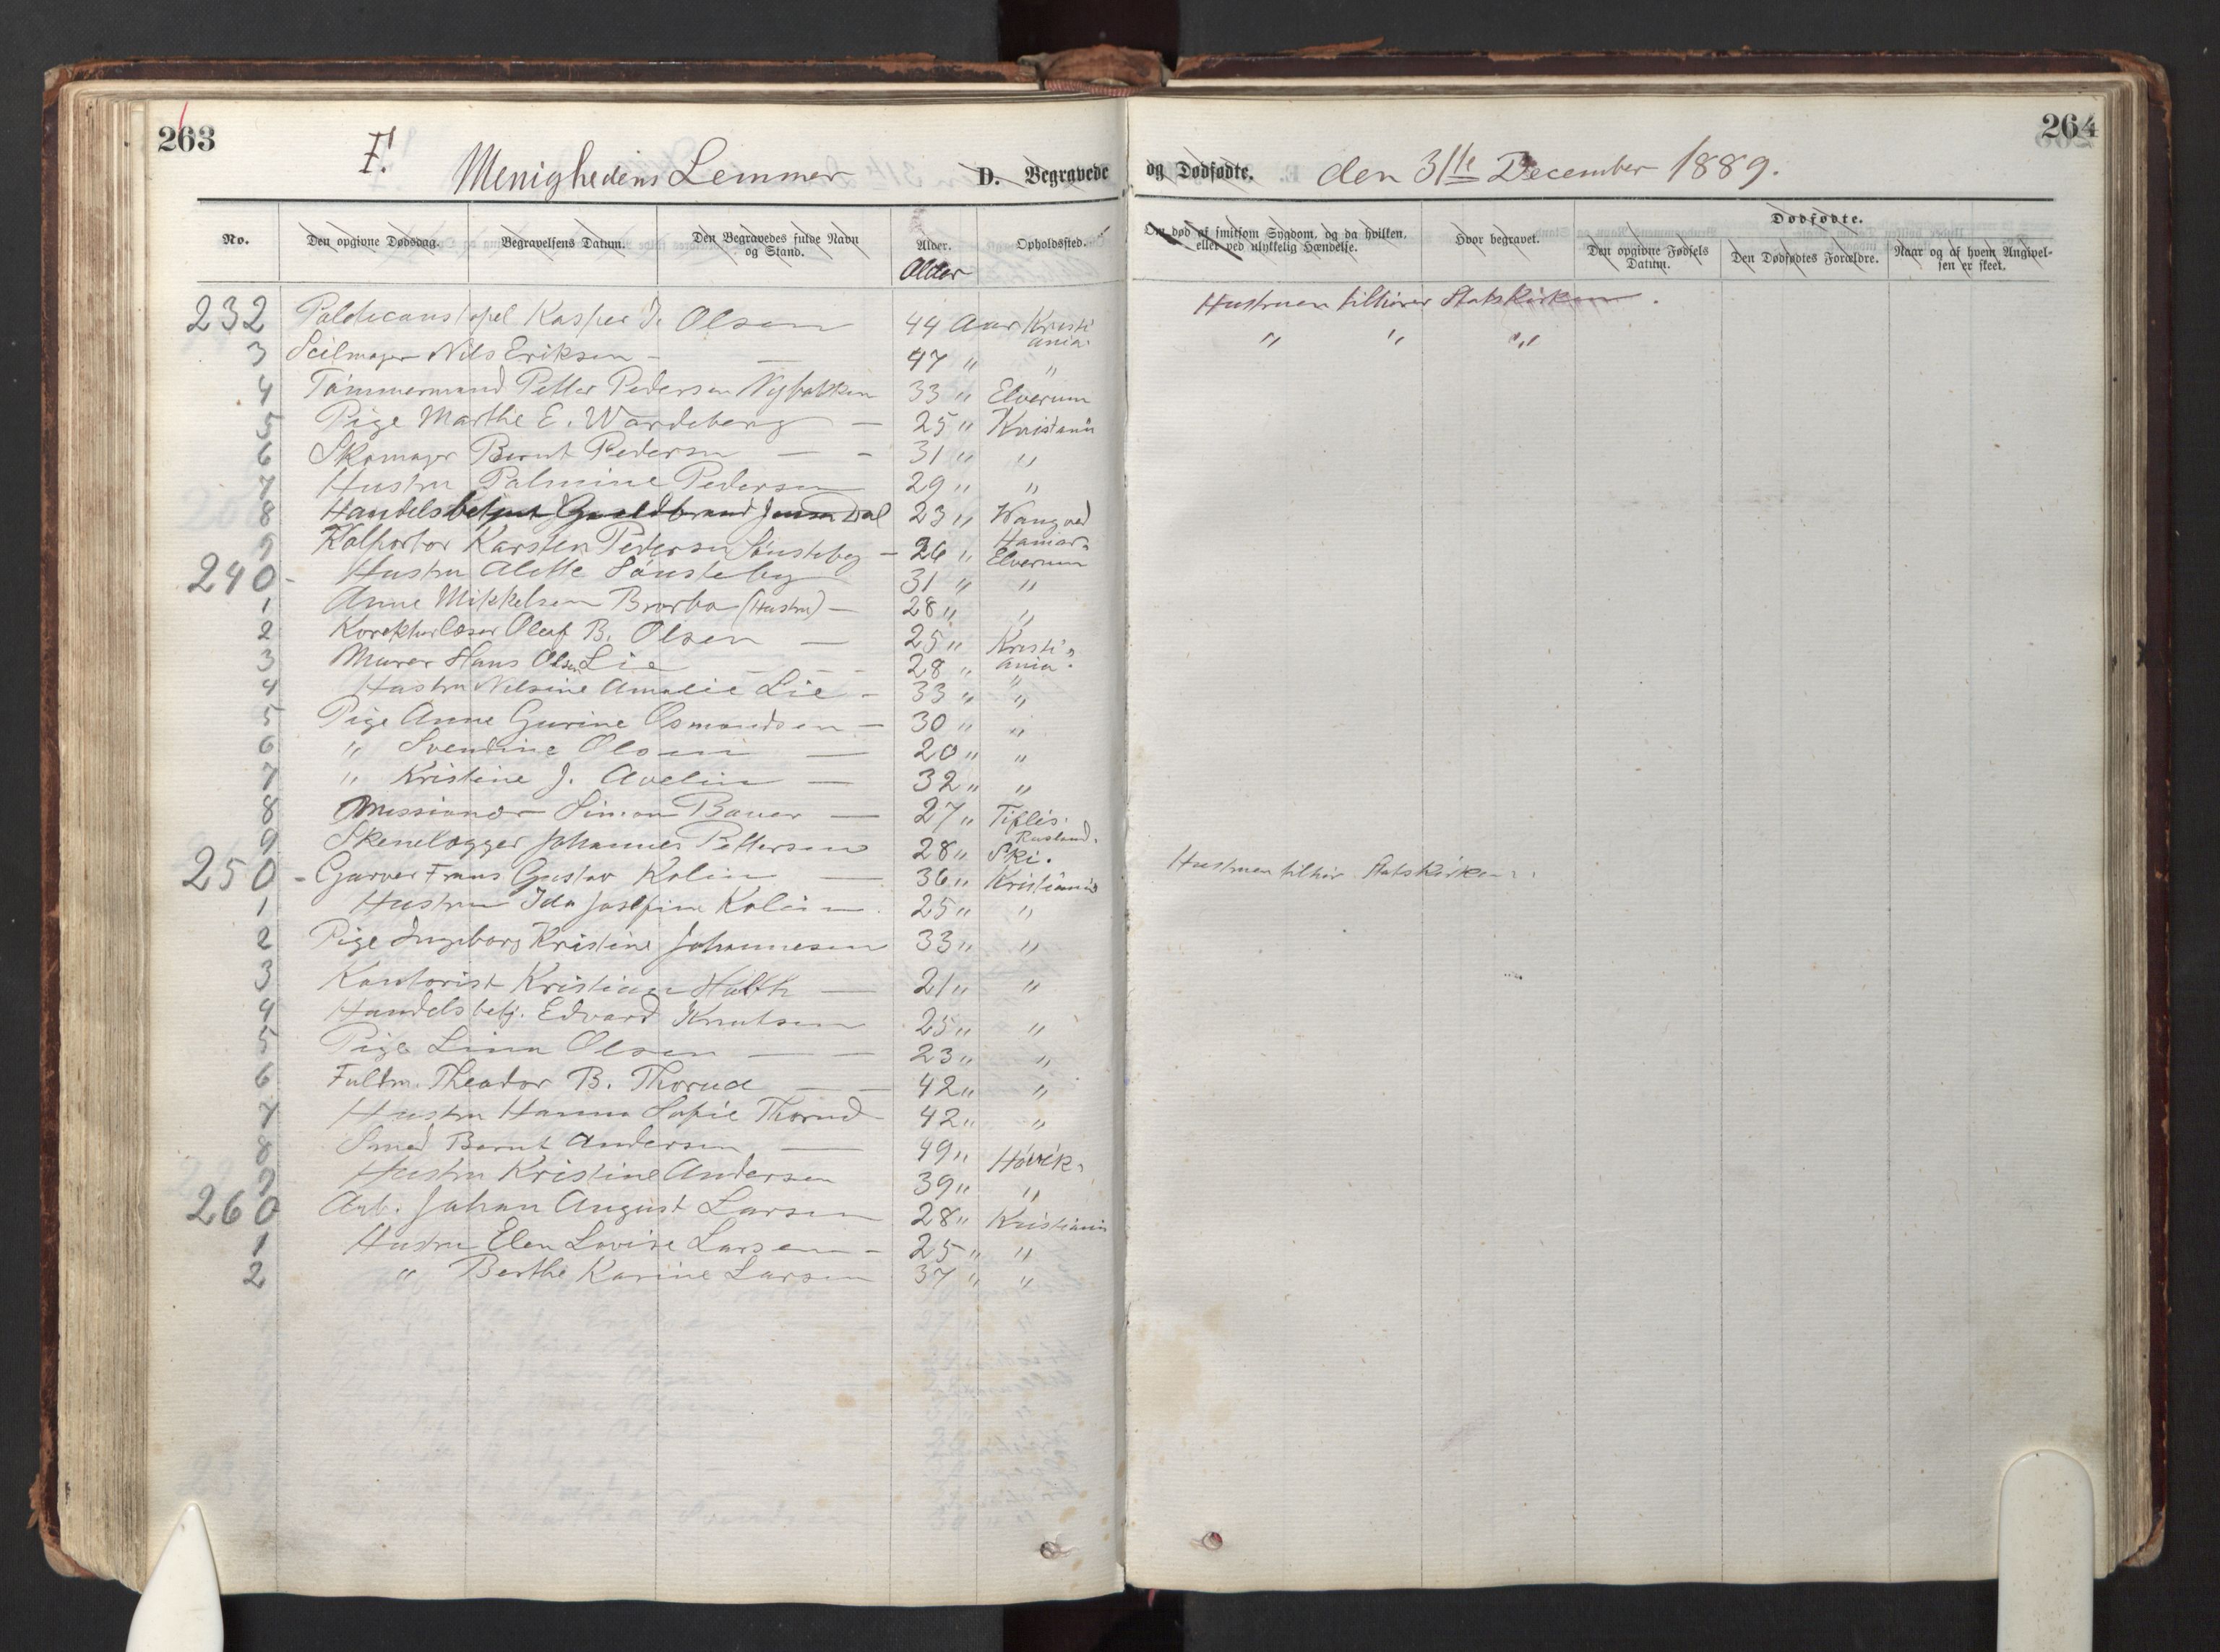 263
F. Menighedens Lemmer D. Begravede
No. Den opgivne Dødsdag. Begravelsens Datum. Den Begravedes fulde Navn og Stand. Alder. Opholdssted.
Alder
232 Kasper J. Olsen 44 Aar Kristiania.
3 Seilmager Nils Eriksen - — 47 " "
4 Tømmermand Petter Pedersen Nybakken 33 " Elverum
5 Pige Marthe E. Wardeberg — 25 " Kristania
6 Skomager Bernt Pedersen — - 31 " "
7 Hustru Palmine Pedersen 29 " "
8 Handelsbetjent Guldbrand Jensen Dal 23 " Wang ved Hamar.
9 Kolportør Karsten Pedersen Sønsteby - 26 " Elverum
240 - Hustru Alette Sønsteby 31 " "
1 Anne Mikkelsen (Hustru) — 28 " "
2 Korekturlæser Oleaf B. Olsen — 25 " Kristiania.
3 Murer Hans Olsen Lie — — 28 " "
4 Hustru Nilsine Amalie Lie - 33 " "
5 Pige Anne Gurine Osmundsen — 30 " "
6 " Svendine Olsen — 20 " "
7 " Kristine J. Avelin — 32 " "
8 Missionær Simon Bauer — 27 " Tiflis. Rusland.
9 Skenelægger Johannes Pettersen 28 " Ski.
250 - Garver Frans Gustav Kolin — 36 " Kristiania
1 Hustru Ida Josefine Kolin 25 " "
2 Pige Ingeborg Kristine Johannesen 33 " "
3 Kontorist Kristian Holth — 21 " "
4 Handelsbetj. Edvard Knutsen 25 " "
5 Pige Lina Olsen — — 23 " "
6 Fuldm. Theodor B. Thorud — — 42 " "
7 Hustru Hanna Sofie Thorud - 42 " "
8 Smed Bernt Andersen — 49 " Høvik.
9 Hustru Kristine Andersen 39 " "
260 Arb. Johan August Larsen 28 " Kristiania
1 Hustru Elen Lovise Larsen - 25 " "
2 " Berthe Karine Larsen 37 " "
264
og Dødfødte. den 31te December 1889.
Om død af smitsom Sygdom, og da hvilken, eller ved ulykkelig Hændelse. Hvor begravet. Dødfødte.
Den opgivne Fødsels Datum. Den Dødfødtes Forældre. Naar og af hvem Angivelsen er skeet.
Hustruen tilhører Statskirken.
" " "
Hustruen tilhør. Statskirken.